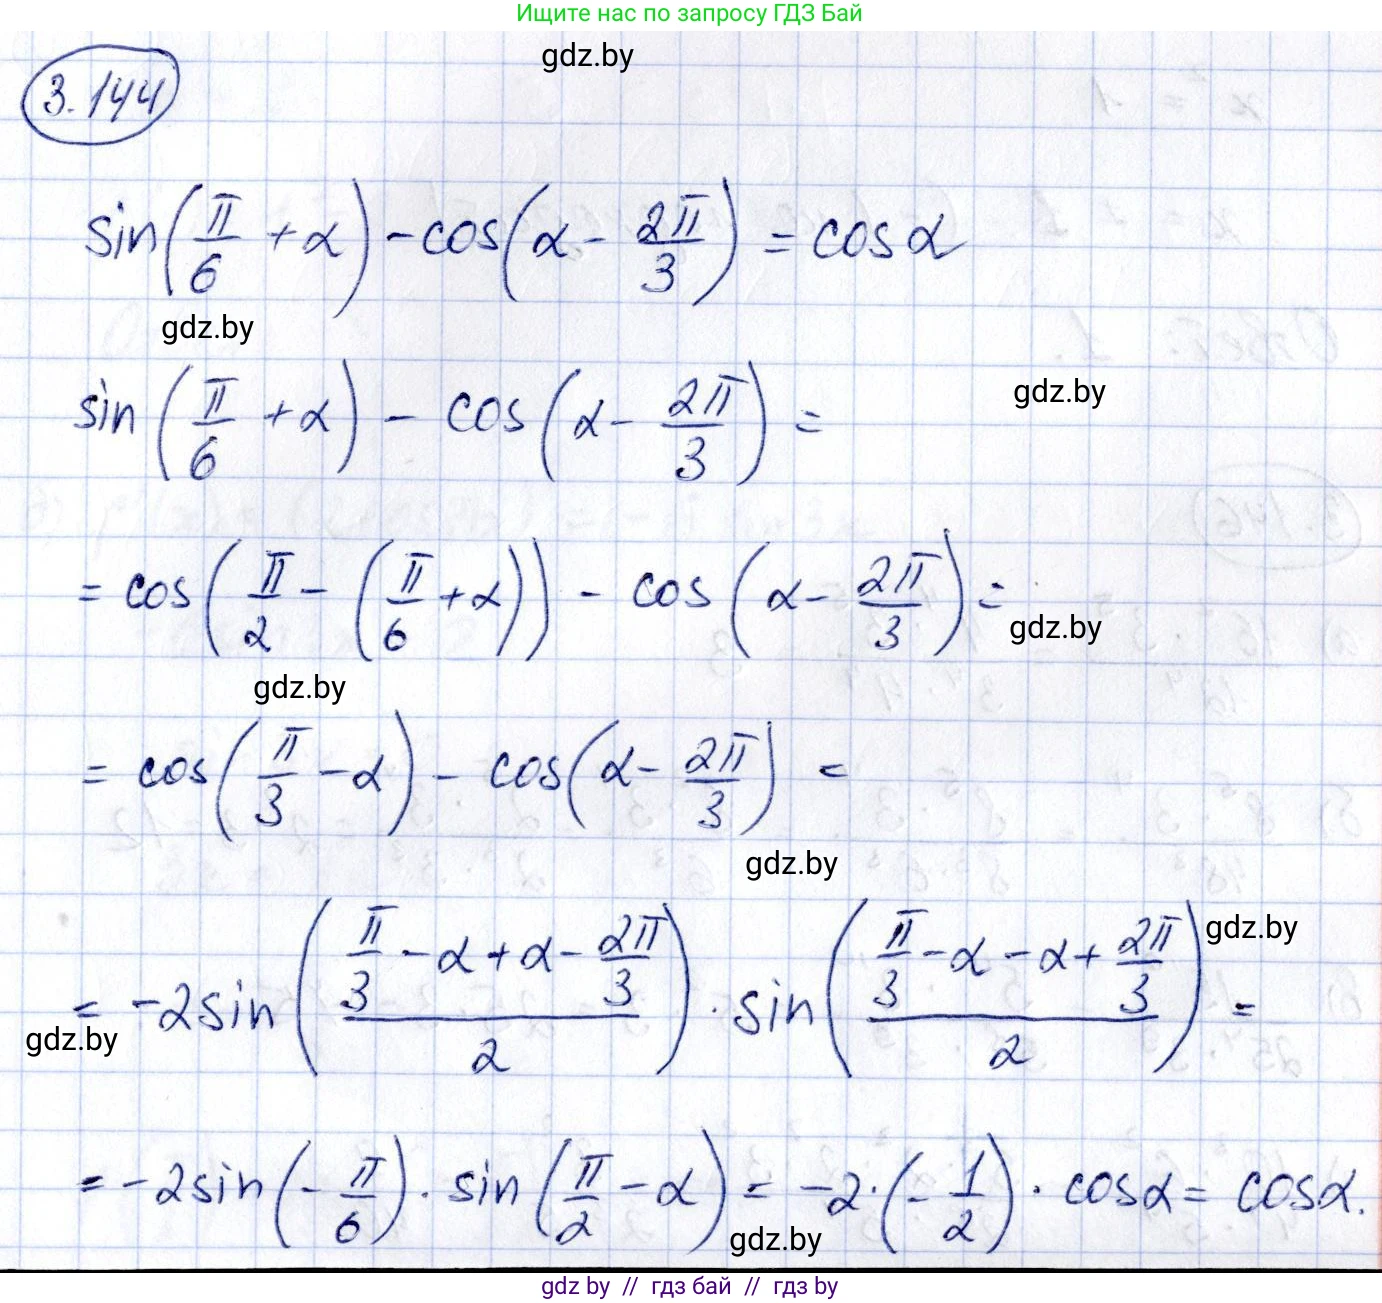 Ищите нас по запросу ГДЗ Бай
gdz.by
3.144
sin(π/6 + α) - cos(α - 2π/3) = cos α
gdz.by
gdz.by
sin(π/6 + α) - cos(α - 2π/3) =
= cos(π/2 - (π/6 + α)) - cos(α - 2π/3) =
gdz.by
gdz.by
= cos(π/3 - α) - cos(α - 2π/3) =
gdz.by
gdz.by
= -2 sin((π/3 - α + α - 2π/3)/2) · sin((π/3 - α - α + 2π/3)/2) =
gdz.by
= -2 sin(-π/6) · sin(π/2 - α) = -2 · (-1/2) · cos α = cos α.
gdz.by
gdz by // гдз бай // гдз by